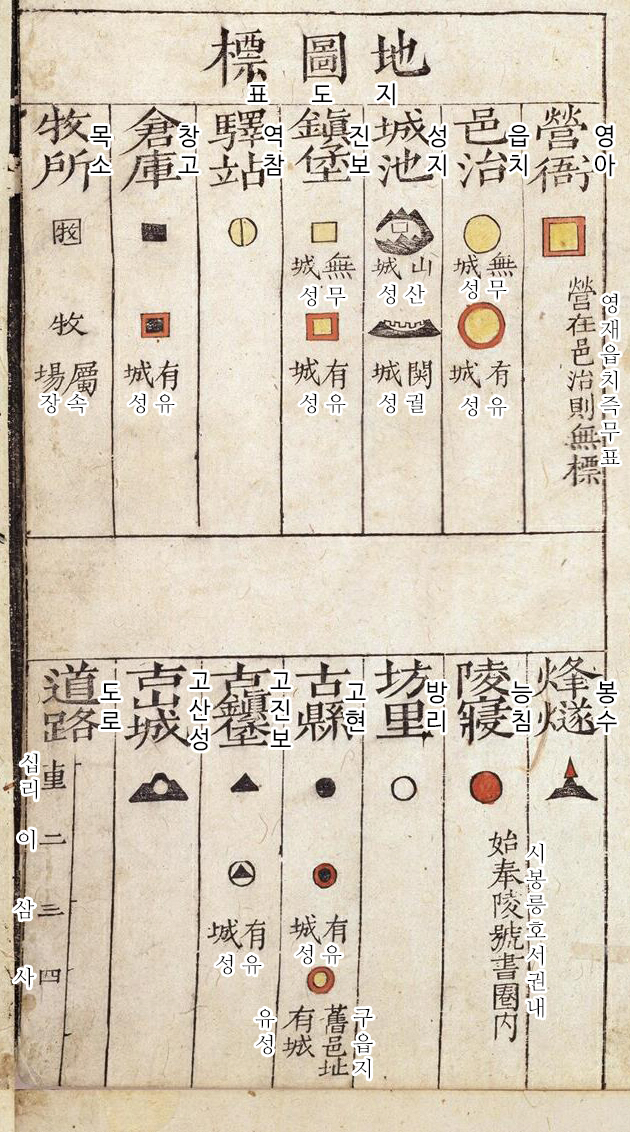 地圖標
지도표
營衙
영아
營在邑治則無標
영재읍치즉무표
邑治
읍치
無城
무성
有城
유성
城池
성지
山城
산성
関城
궐성
鎭堡
진보
無城
무성
有城
유성
驛站
역참
倉庫
창고
有城
유성
牧所
목소
牧
牧
屬場
속장
烽燧
봉수
陵寢
능침
始奉陵號書圈内
시봉릉호서권내
坊里
방리
古縣
고현
有城
유성
舊邑址
有城
구읍지
유성
古鎭堡
고진보
有城
유성
古山城
고산성
道路
도로
十里
십리
二
이
三
삼
四
사